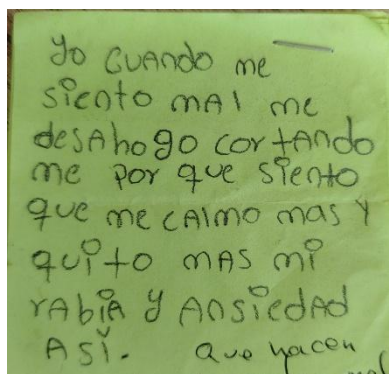 Yo CUANDO me
siento mAl me
desAhogo cortANdo
me por que siento
que me cAlmo mas y
quito mAS mi
rAbiA y ANsiedAd
ASí. Que hacen